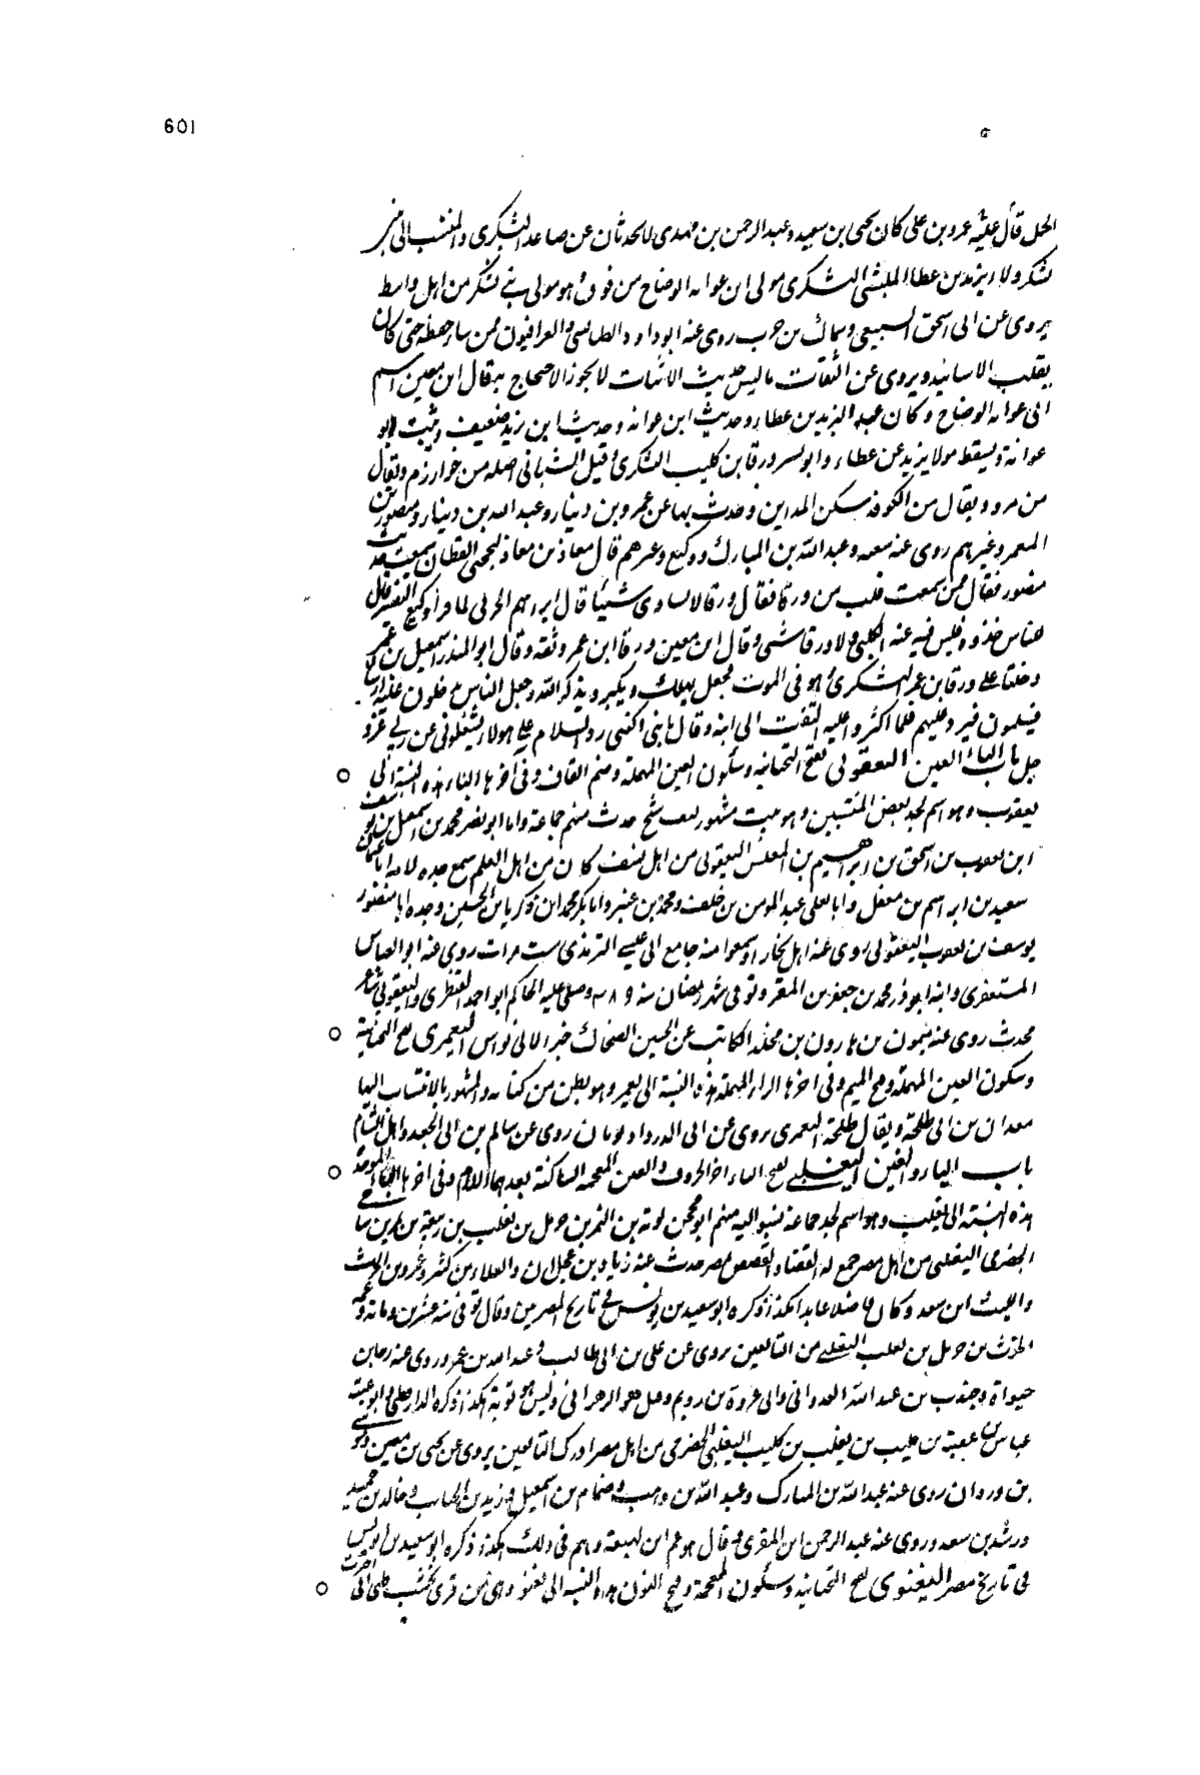 601
قال عليه عمرو بن على كان يحيى بن سعيد وعبد الرحمن بن مهدى لا يحدثان عن صاعد اليشكرى والمنتسب الى
يشكر ولاء يزيد بن عطاء اليشكرى مولى ابى عوانه الوضاح من فوق وهو مولى بنى يشكر من اهل واسط
يروى عن ابى اسحق السبيعى وسماك بن حرب روى عنه ابو داود الطيالسى والعراقيون ممن ساء حفظه حتى كان
يقلب الاسانيد ويروى عن الثقات ما ليس حديث الاثبات لا يجوز الاحتجاج به قال ابن معين اسم
ابى عوانه الوضاح وكان عبد اليزيد بن عطاء وحديث ابى عوانه وحديث ضعيف وثبت ابو
عوانة وسقط مولاه يزيد بن عطاء وابو بسر ورقا بن كليب اليشكرى وقيل الشيبانى اصله من خوارزم ويقال
من مرو ويقال من الكوفه سكن المداين وحدث بها عن عمرو بن دينار وعبد الله بن دينار ومنصور بن
المعتمر وغيرهم روى عنه شعبه وعبد الله بن المبارك ووكيع وغيرهم قال معاذ بن معاذ ليحيى القطان سمعت حديث
منصور فقال ممن سمعت قلت من ورقا فقال ورقا لا يساوى شيئا قال ابراهيم الحربى لما قرأ وكيع التفسير قال
للناس خذوه فليس فيه عن الكلبى ولا ورقا شىء وقال ابن معين ورقا ابن عمر وثقه وقال ابو المنذر اسمعيل بن عمر
دخلنا على ورقا بن عمر اليشكرى وهو فى الموت فجعل يهلل ويكبر ويذكر الله وجعل الناس يدخلون عليه
فيسلمون فيرد عليهم فلما اكثروا عليه التفت الى ابنه وقال يا بنى اكفنى رد السلام على هولاء لا يشغلونى عن ربى عز و
جل باب الياء العين اليعقوبى بفتح التحتانيه وسكون العين المهملة وضم القاف وفى آخرها الباء هذه النسبة الى
يعقوب وهو اسم لجد بعض المنتسبين وهو بيت مشهور بنسف حدث منهم جماعة واما ابو نصر محمد بن اسمعيل
ابن يعقوب بن اسحق بن ابراهيم بن المغلس اليعقوبى من اهل نسف كان من اهل العلم سمع جده لامه ابا عثمان
سعيد بن ابراهيم بن معقل وابا يعلى عبد المومن بن خلف ومحمد بن عنبر وابا بكر محمد بن زكريا بن الحسين وجده ابا منصور
يوسف بن يعقوب اليعقوبى روى عنه اهل بخارا وسمعوا منه جامع ابى عيسى الترمذى ست مرات روى عنه ابو العباس
المستغفرى وابنه ابو ذر محمد بن جعفر بن المعتز وتوفى شهر رمضان سنه ٣٨٩ وصلى عليه الحاكم ابو احمد القنطرى واليعقوبى شاعر
محدث روى عنه ميمون بن هارون بن مخلد الكاتب عن الحسين الضحاك خبرا لابى نواس اليعمرى بفتح التحتانية
وسكون العين المهملة وفتح الميم وفى اخرها الراء المهملة هذه النسبة الى يعمر وهو بطن من كنانه والمشهور بالانتساب اليها
معدان بن ابى طلحة ويقال طلحة اليعمرى يروى عن ابى الدرداء وثوبان روى عن سالم بن ابى الجعد واهل الشام
باب الياء والغين اليغلبى بفتح الياء اخر الحروف والغين المعجمة الساكنة بعدها اللام وفى اخرها الباء الموحدة
هذه النسبة الى يغلب وهو اسم لجد جماعة نسبوا اليه منهم ابو محجن توبه بن النمر بن حرمل بن يغلب بن ربيعة بن نمر بن
الحضرمى اليغلبى من اهل مصر جمع له القضاء والقصص بمصر حدث عنه زياد بن عجلان والعلاء بن كثير وعمرو بن الحرث
والليث ابن سعد وكان فاضلا عابدا هكذا ذكره ابو سعيد بن يونس فى تاريخ المصريين وقال توفى سنه عشرين ومائة وعمه
الحرث بن حرمل بن يغلب اليغلبى من التابعين يروى عن على بن ابى طالب وعبد الله بن عمرو روى عنه رجاء بن
حيواة وجندب بن عبد الله العدوانى وابى عروة بن رويم
عباس بن عقبة بن كليب بن يغلب بن كليب اليغلبى الحضرمى من اهل مصر ادرك التابعين يروى عن يحيى بن ميمون
بن وردان روى عنه عبد الله بن المبارك وعبد الله بن وهب وضمام بن اسمعيل وزيد بن الحباب وخالد بن حميد
ورشد بن سعد وروى عنه عبد الرحمن ابن المقرى وقال هو عم ابن لهيعة وهم فى ذلك هكذا ذكره ابو سعيد بن يونس
فى تاريخ مصر اليغنوى بفتح التحتانيه وسكون المعجمة وفتح النون هذه النسبه الى يغنو وهى من قرى نخشب